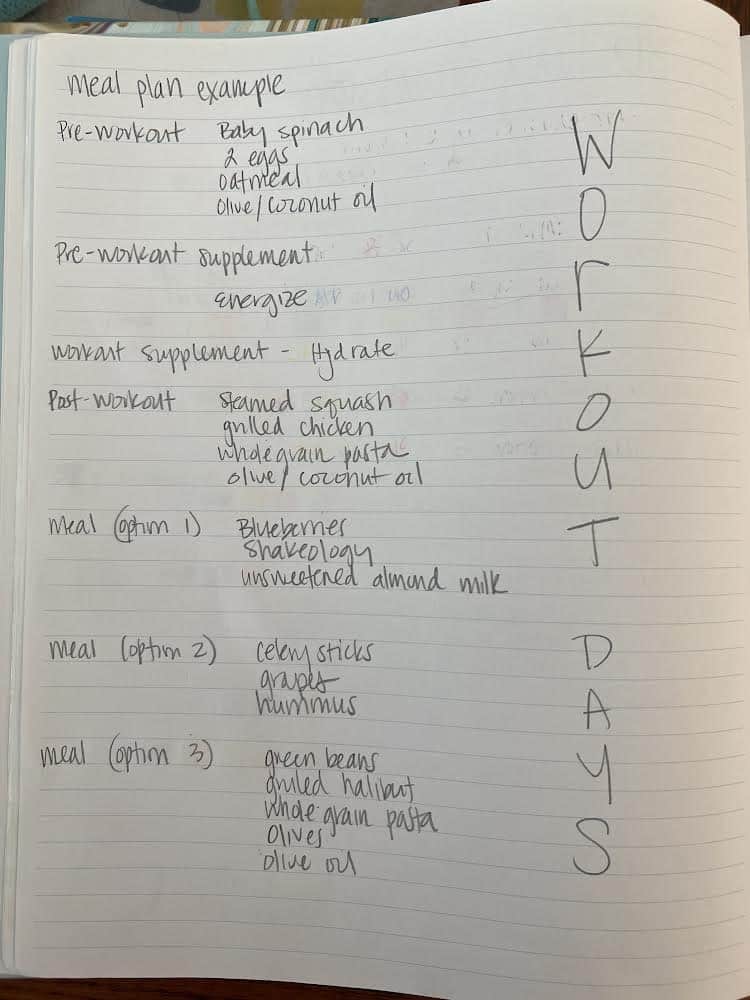 meal plan example
Pre-workout Baby spinach
2 eggs
oatmeal
Olive/coconut oil
Pre-workout supplement
energize
workout supplement - Hydrate
Post-workout steamed squash
grilled chicken
whole grain pasta
olive/coconut oil
meal (option 1) Blueberries
shakeology
unsweetened almond milk
meal (option 2) celery sticks
grapes
hummus
meal (option 3) green beans
grilled halibut
whole grain pasta
olives
olive oil
W
O
r
K
O
U
T
D
A
Y
S